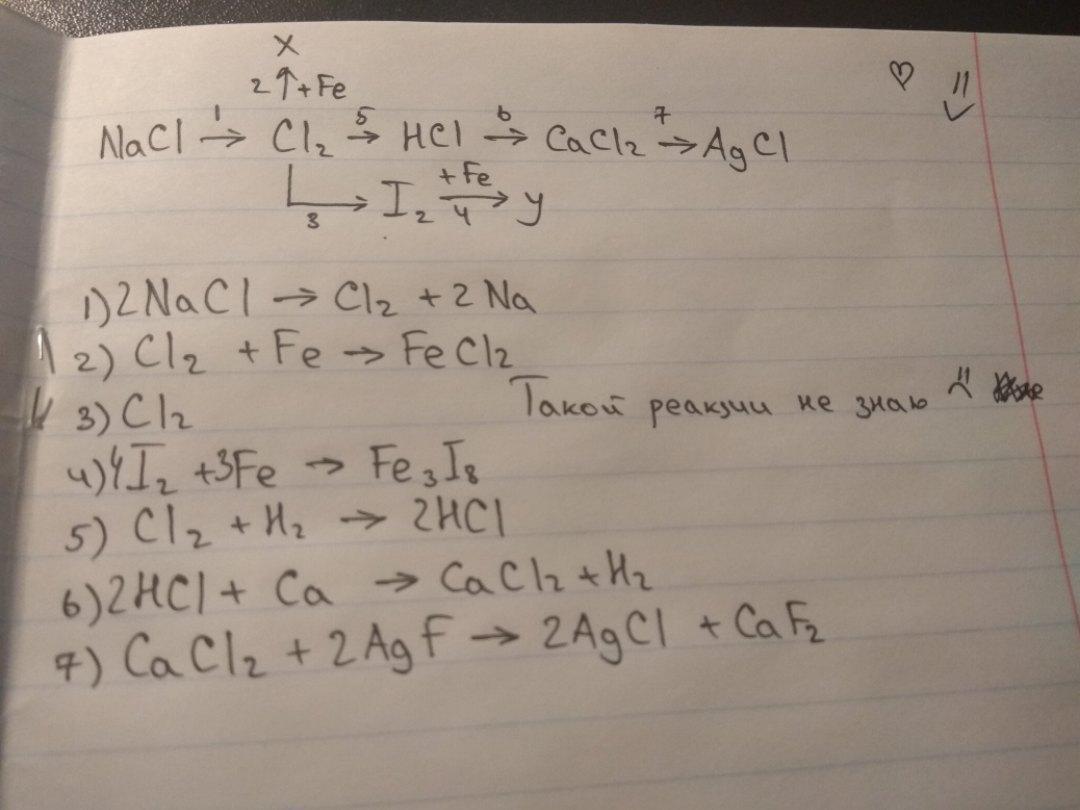 X
2↑+Fe
NaCl 1→ Cl₂ 5→ HCl 6→ CaCl₂ 7→ AgCl
3→ I₂ +Fe 4→ y
1) 2NaCl → Cl₂ + 2Na
2) Cl₂ + Fe → FeCl₂
3) Cl₂ Такой реакзии не знаю
4) 4I₂ + 3Fe → Fe₃I₈
5) Cl₂ + H₂ → 2HCl
6) 2HCl + Ca → CaCl₂ + H₂
7) CaCl₂ + 2AgF → 2AgCl + CaF₂